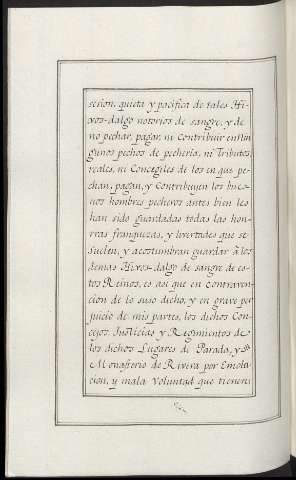 sesion, quieta y pacifica de tales Hi-
xos-dalgo notorios de sangre, y de
no pechar, pagar, ni Contribuir en Nin
gunos pechos de pecheria, ni Tributos,
reales, ni Concegiles de los en que pe-
chan, pagan, y Contribuyen los bue-
nos hombres pecheros antes bien les
han sido guardadas todas las hon-
rras franquezas, y livertades que se
Suelen, y acostumbran guardar à los
demas Hixos-dalgo de sangre de es-
tos Reinos, es asi que en contraven-
cion de lo suso dicho, y en grave per
juicio de mis partes, los dichos Con-
cejos, Justicias y Regimientos de
los dichos Lugares de Parada, y
Monasterio de Rivera por Emola-
cion, y mala Voluntad que tienen